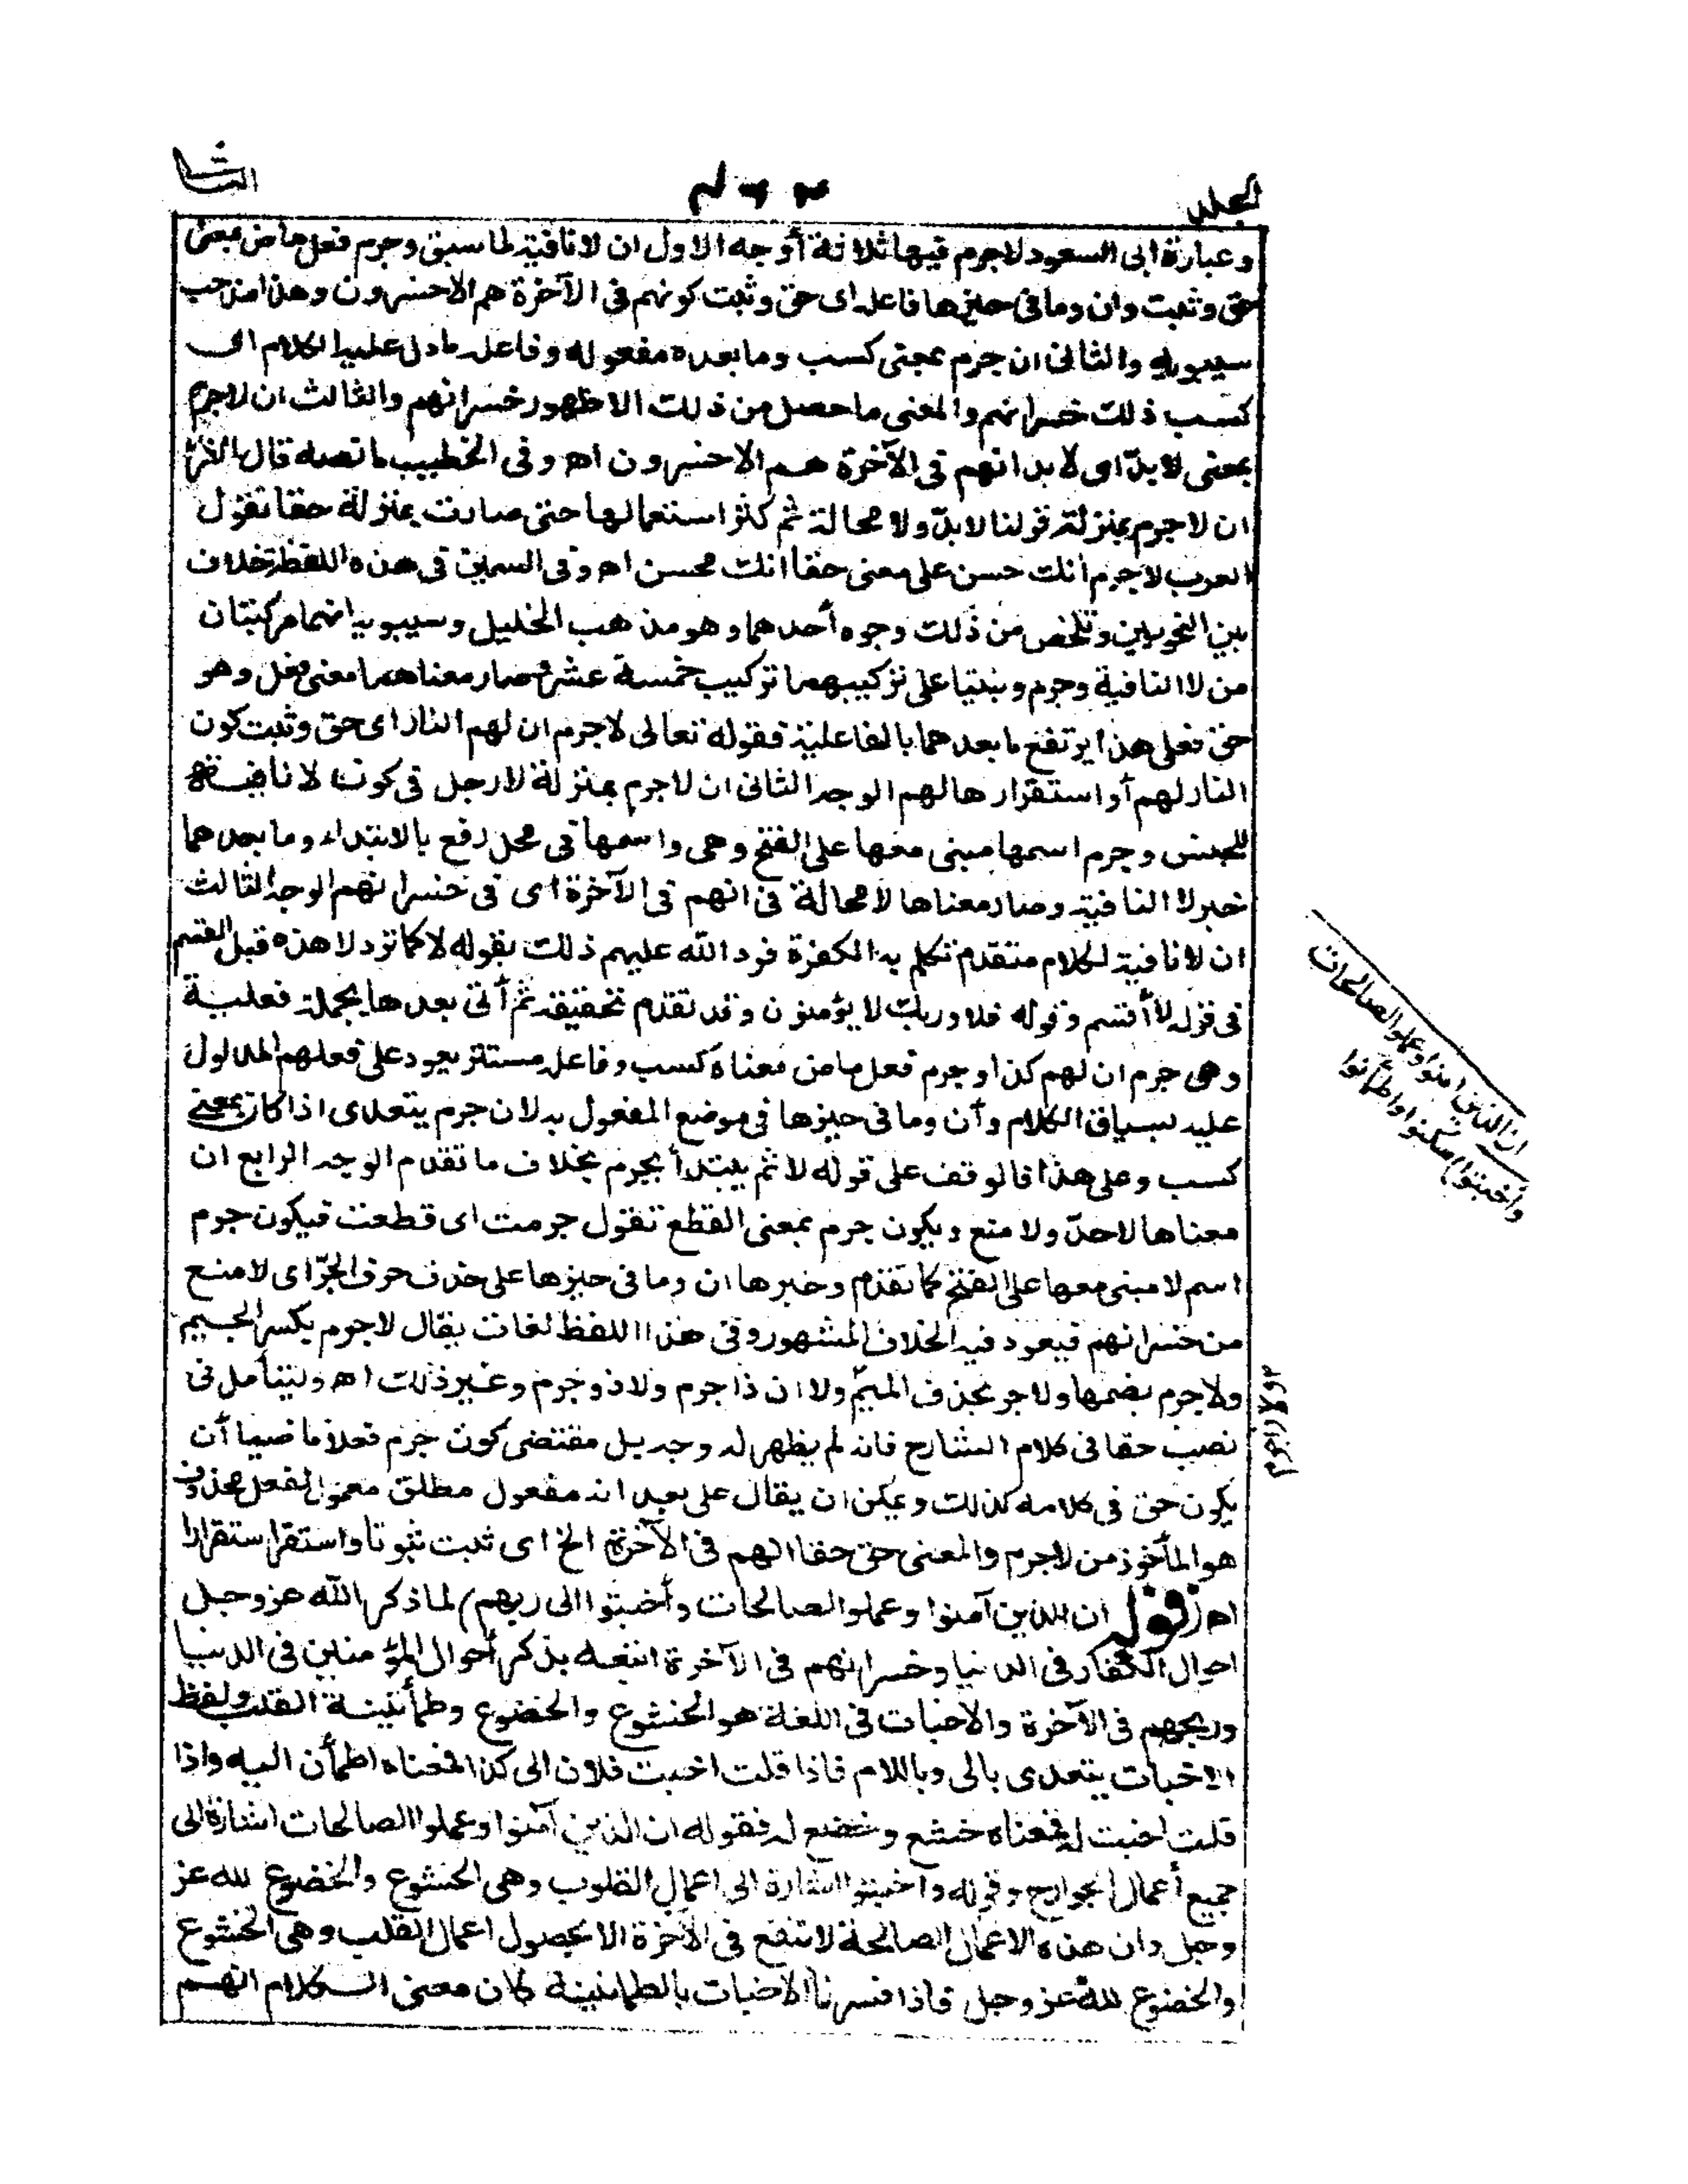 الجلد
الثانى
وعبارة ابى السعود لاجرم فيها ثلاثة أوجه الاول ان لا نافية لما سبق وجرم فعل ماض بمعنى
حق وثبت وان وما فى حيزها فاعله اى حق وثبت كونهم فى الآخرة هم الاخسرون وهذا مذهب
سيبويه والثانى ان جرم بمعنى كسب وما بعده مفعوله وفاعله ما دل عليه الكلام اى
كسب ذلك خسرانهم والمعنى ما حصل من ذلك الا ظهور خسرانهم والثالث ان لاجرم
بمعنى لا بدّ اى لا بد انهم فى الآخرة هم الاخسرون اه وفى الخطيب ما نصه قال الفرّاء
ان لاجرم بمنزلة قولنا لا بدّ ولا محالة ثم كثر استعمالها حتى صارت بمنزلة حقا تقول
العرب لاجرم انك حسن على معنى حقا انك محسن اه وفى السمين فى هذه اللفظة خلاف
بين النحويين وتلخص من ذلك وجوه أحدهما وهو مذهب الخليل وسيبويه انهما مركبتان
من لا النافية وجرم وبنيتا على تركيبهما تركيب خمسة عشر وصار معناهما معنى فعل وهو
حق فعلى هذا يرتفع ما بعدهما بالفاعلية فقوله تعالى لاجرم ان لهم النار اى حق وثبت كون
النار لهم أو استقرارها لهم الوجه الثانى ان لاجرم بمنزلة لا رجل فى كون لا نافية
للجنس وجرم اسمها مبنى معها على الفتح وهى واسمها فى محل رفع بالابتداء وما بعدهما
خبر لا النافية وصار معناها لا محالة فى انهم فى الآخرة اى فى خسرانهم الوجه الثالث
ان لا نافية لكلام متقدم تكلم به الكفرة فرد الله عليهم ذلك بقوله لا كما ترد لا هذه قبل القسم
فى قوله لا أقسم وقوله فلا وربك لا يؤمنون وقد تقدم تحقيقه ثم أتى بعدها بجملة فعلية
وهى جرم ان لهم كذا وجرم فعل ماض معناه كسب وفاعله مستتر يعود على فعلهم المدلول
عليه بسياق الكلام وأن وما فى حيزها فى موضع المفعول به لان جرم يتعدى اذا كان بمعنى
كسب وعلى هذا فالوقف على قوله لا ثم يبتدأ بجرم بخلاف ما تقدم الوجه الرابع ان
معناها لا حدّ ولا منع ويكون جرم بمعنى القطع تقول جرمت اى قطعت فيكون جرم
اسم لا مبنى معها على الفتح كما تقدم وخبرها ان وما فى حيزها على حذف حرف الجرّ اى لا منع
من خسرانهم فيعود فيه الخلاف المشهور وفى هذا اللفظ لغات يقال لاجرم بكسر الجيم
ولاجرم بضمها ولاجر بحذف الميم ولا ان ذا جرم ولا ذو جرم وغير ذلك اه وليتأمل فى
نصب حقا فى كلام الشارح فانه لم يظهر له وجه بل مقتضى كون جرم فعلا ماضيا أن
يكون حق فى كلامه كذلك ويمكن ان يقال على بعد انه مفعول مطلق معمول لفعل محذوف
هو المأخوذ من لاجرم والمعنى حق حقا انهم فى الآخرة الخ اى ثبت ثبوتا واستقر استقرارا
اه (قوله ان الذين آمنوا وعملوا الصالحات وأخبتوا الى ربهم) لما ذكر الله عز وجل
احوال الكفار فى الدنيا وخسرانهم فى الآخرة اتبعه بذكر أحوال المؤمنين فى الدنيا
وربحهم فى الآخرة والاخبات فى اللغة هو الخشوع والخضوع وطمأنينة القلب ولفظ
الاخبات يتعدى بالى وباللام فاذا قلت اخبت فلان الى كذا فمعناه اطمأن اليه واذا
قلت اخبت له فمعناه خشع وخضع له فقوله ان الذين آمنوا وعملوا الصالحات اشارة الى
جميع أعمال الجوارح وقوله وأخبتوا اشارة الى اعمال القلوب وهى الخشوع والخضوع لله عز
وجل وان هذه الاعمال الصالحة لا تنفع فى الآخرة الا بحصول اعمال القلب وهى الخشوع
والخضوع لله عز وجل فاذا فسرنا الاخبات بالطمأنينة كان معنى الكلام انهم
ان الذين امنوا وعملوا الصالحات
واخبتوا) سكنوا واطمأنوا